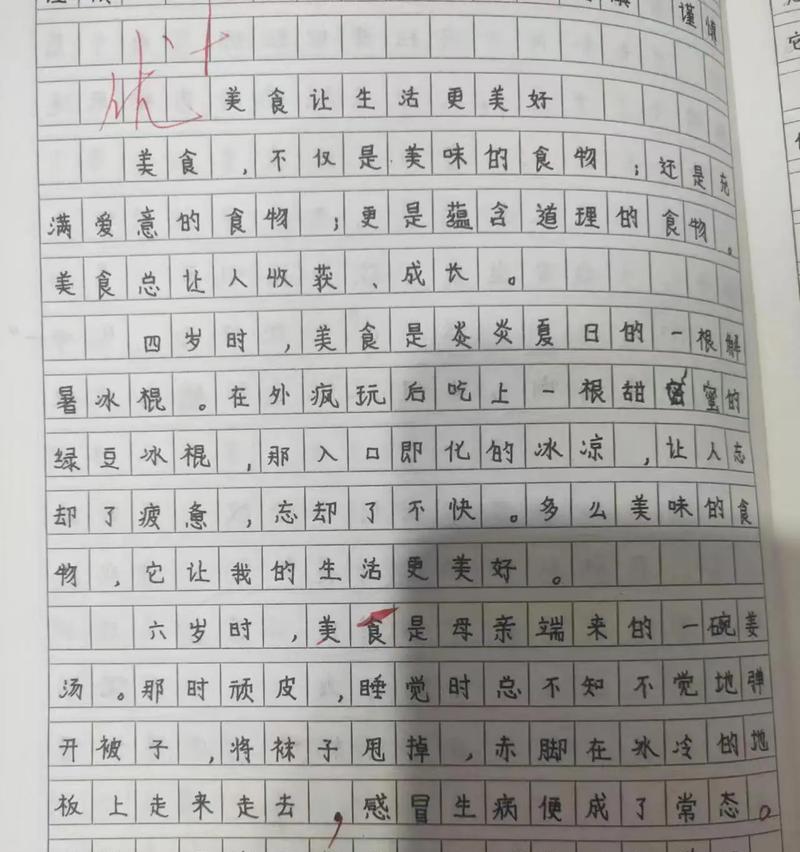 谨慎
优+
美食让生活更美好
美食,不仅是美味的食物;还是充
满爱意的食物;更是蕴含道理的食物。
美食总让人收获、成长。
四岁时,美食是炎炎夏日的一根解
暑冰棍。在外疯玩后吃上一根甜蜜蜜的
绿豆冰棍,那入口即化的冰凉,让人忘
却了疲惫,忘却了不快。多么美味的食
物,它让我的生活更美好。
六岁时,美食是母亲端来的一碗姜
汤。那时顽皮,睡觉时总不知不觉地弹
开被子,将袜子甩掉,赤脚在冰冷的地
板上走来走去,感冒生病便成了常态。